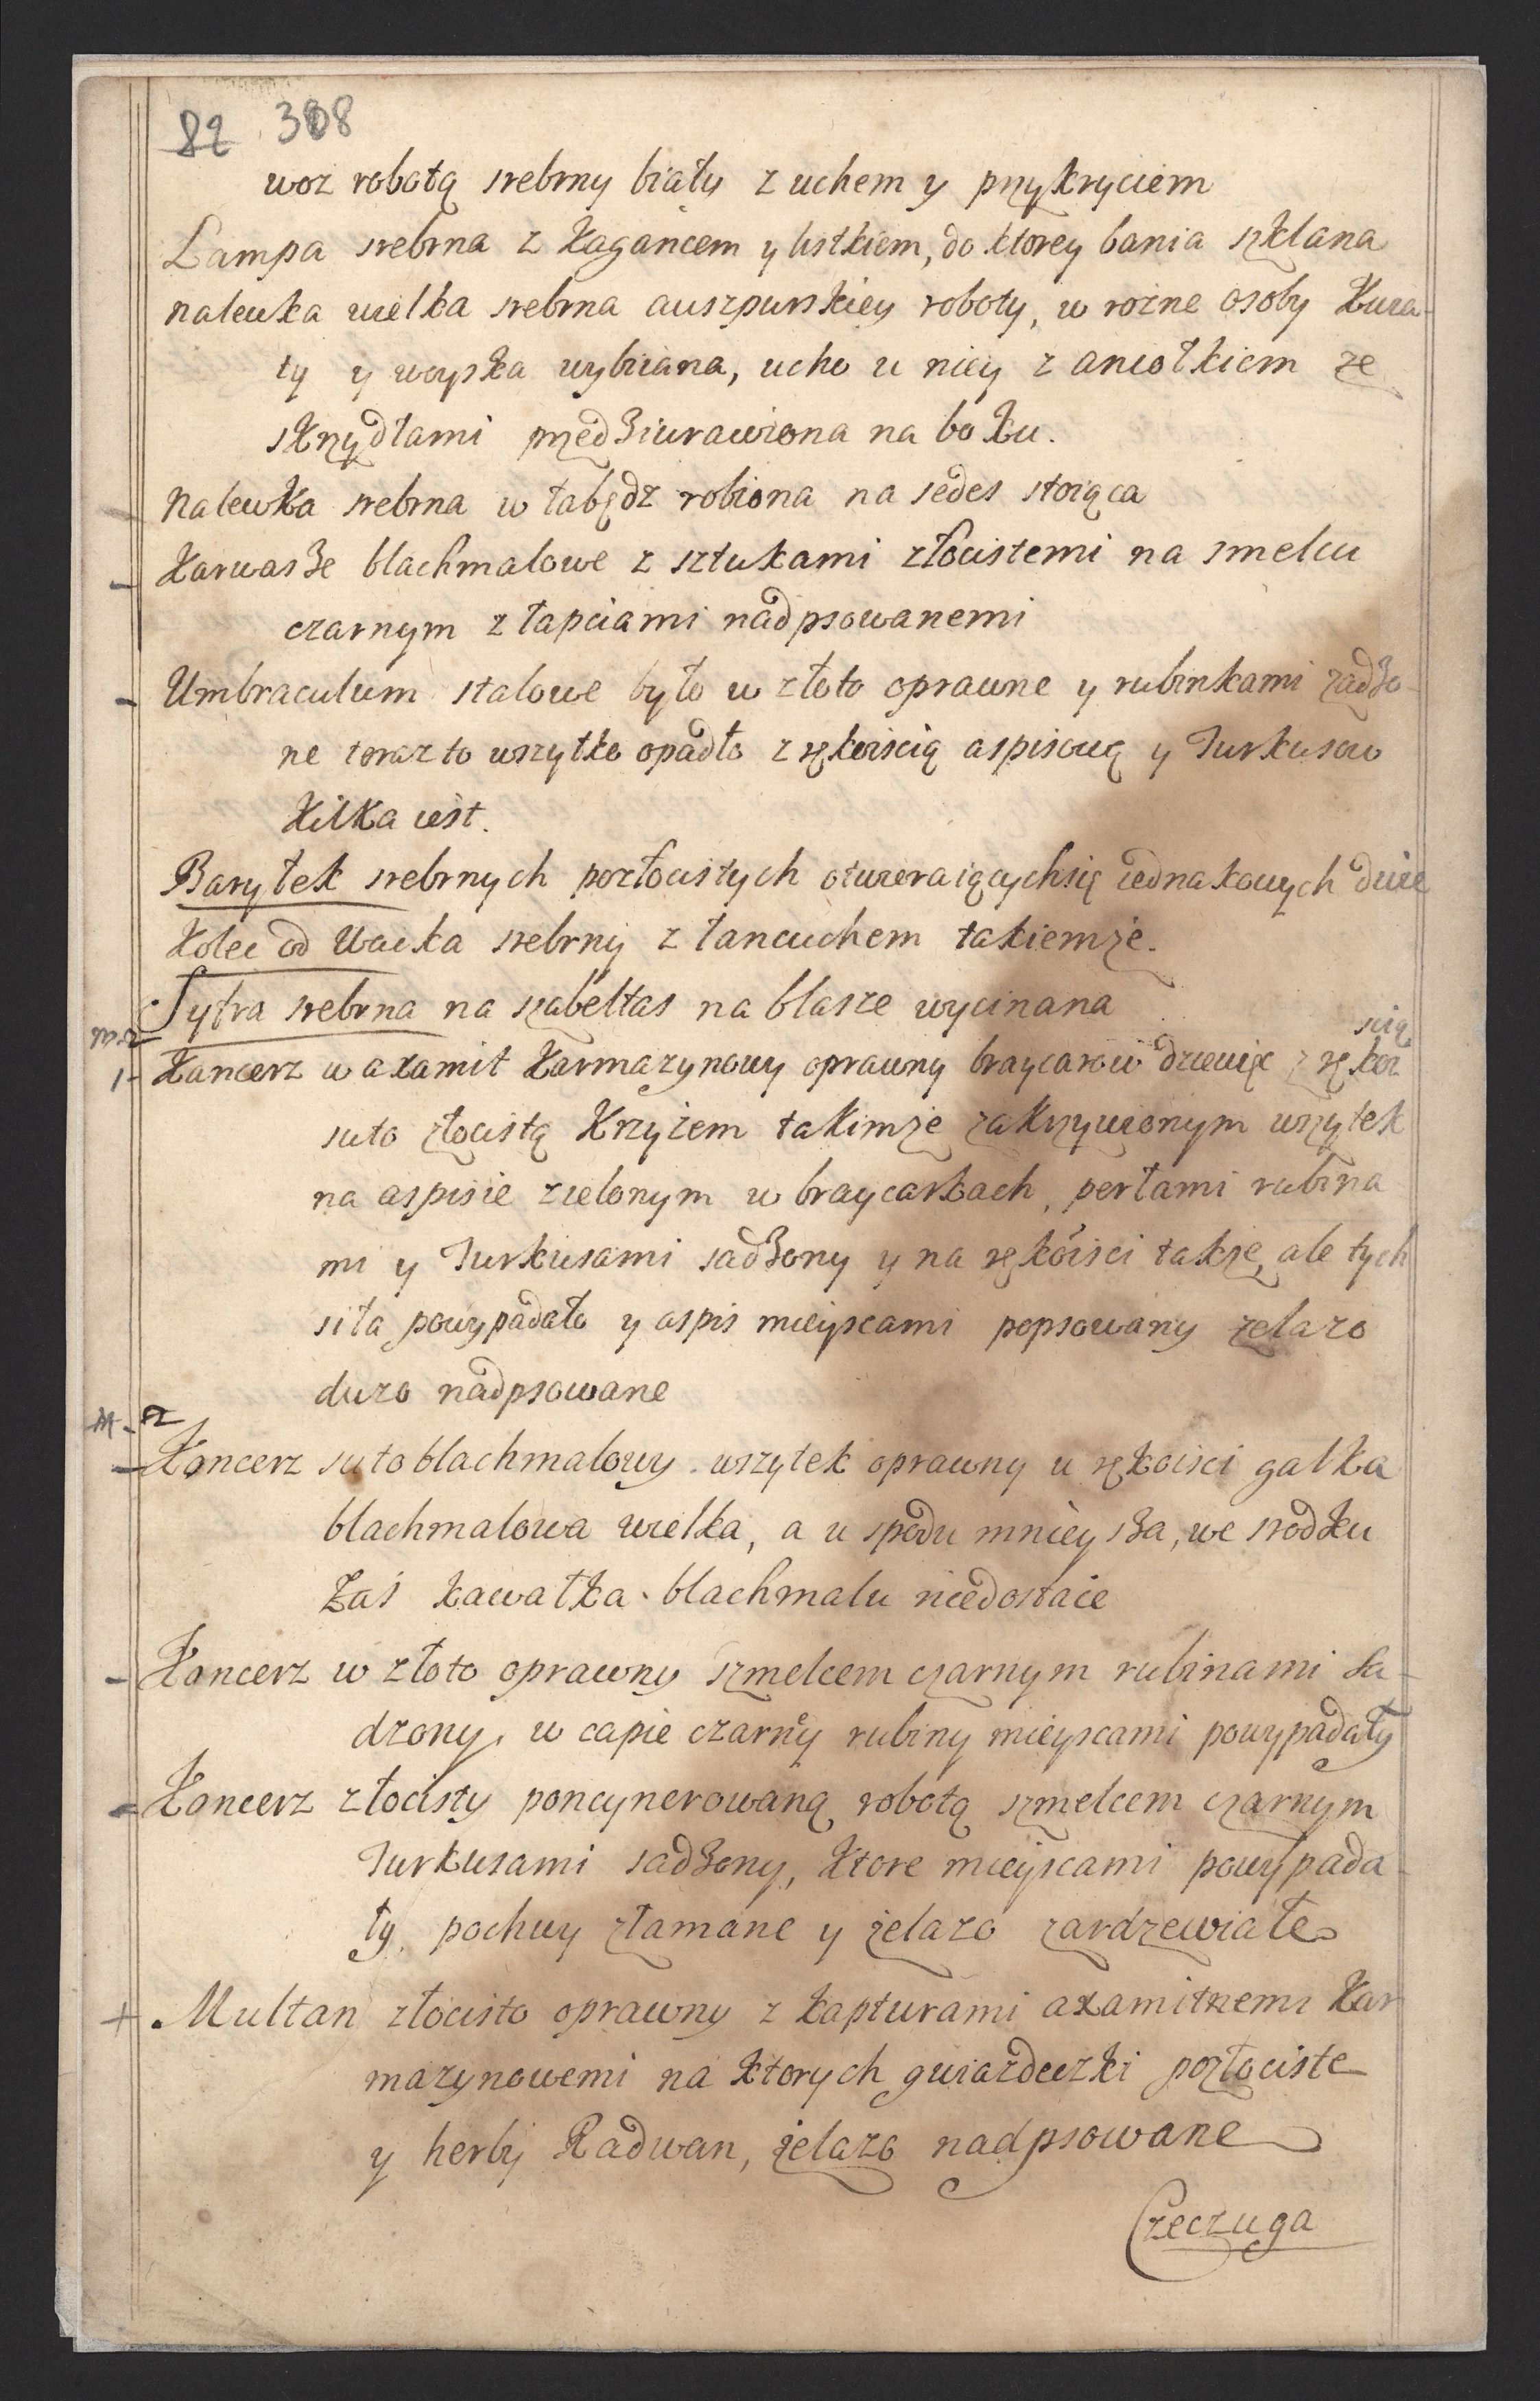 82 308
woz robotą srebrny biały z uchem y przykryciem
Lampa srebrna z kagańcem y listkiem, do ktorey bania szklana
nalewka wielka srebrna auszpurskiey roboty, w rożne osoby kwia-
ty y woyska wybiiana, ucho u niey z aniołkiem ze
skrzydłami przedziurawiona na boku.
Nalewka srebrna w łabędz robiona na sedes stoiąca
Karwasze blachmalowe z sztukami złocistemi na smelcu
czarnym z łapciami nadpsowanemi
Umbraculum stalowe było w złoto oprawne y rubinkami sadzo-
ne teraz to wszytko opadło z rękoiscią aspisową y Turkusow
kilka iest.
Baryłek srebrnych pozłocistych otwieraiących się iednakowych dwie
Kolec od Wacka srebrny z łancuchem takiemże.
Cyfra srebrna na szabeltas na blasze wycinana
m. r.
1- Kancerz w axamit karmazynowy oprawny braycarow dziewięc z rękoi
scią
suto złocistą Krzyżem takimze zakrzywionym wszytek
na aspisie zielonym w braycarkach, perłami rubina
mi y Turkusami sadzony y na rękoiści takze, ale tych
siła powypadało y aspis mieyscami popsowany zelazo
duzo nadpsowane
M. r
Kancerz suto blachmalowy wszytek oprawny u rękoisci gałka
blachmalowa wielka, a u spodu mnieysza, we srodku
Zaś kawałka blachmalu niedostaie
- Kancerz w złoto oprawny szmelcem czarnym rubinami sa-
dzony, w capie czarney rubiny mieyscami powypadały
- Kancerz złocisty poncynerowaną robotą szmelcem czarnym
Turkusami sadzony, ktore mieyscami powypada-
ły, pochwy złamane y żelazo zardzewiałe
+ Multan złocisto oprawny z kapturami axamitnemi kar
mazynowemi na ktorych gwiazdeczki pozłociste
y herby Radwan, żelazo nadpsowane
Czeczuga